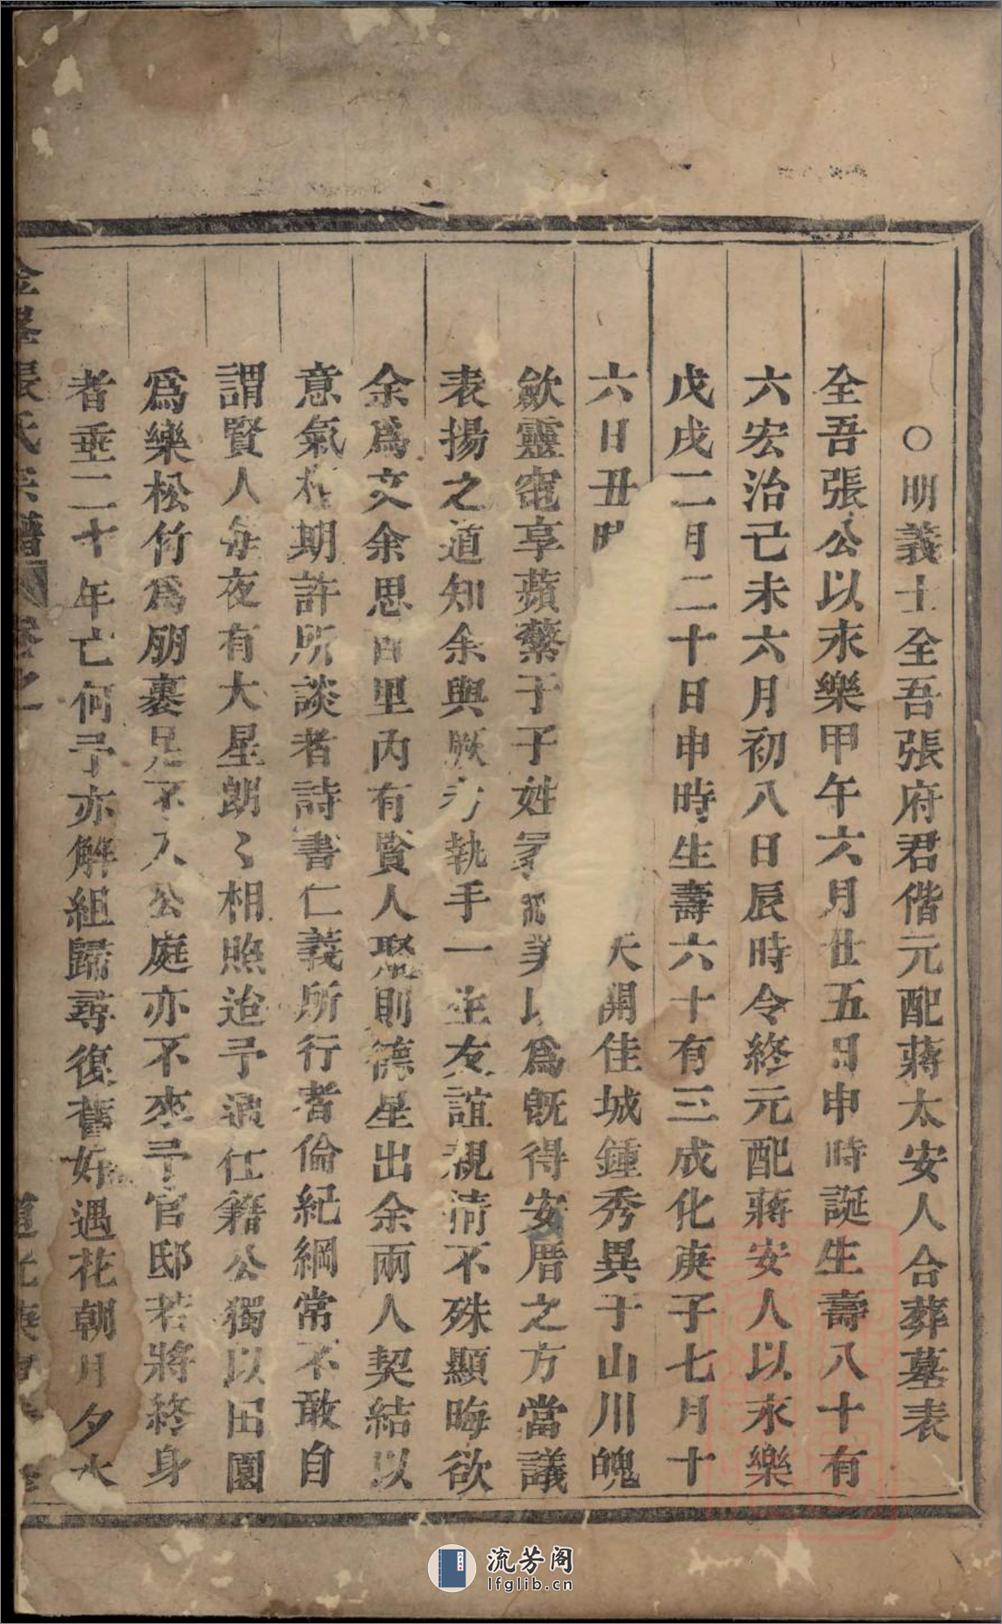 ○明義士全吾張府君偕元配蔣太安人合葬墓表
全吾張公以永樂甲午六月廿五日申時誕生壽八十有
六宏治己未六月初八日辰時令終元配蔣安人以永樂
戊戌二月二十日申時生壽六十有三成化庚子七月十
六日丑時 天開佳城鍾秀異于山川魄
歛靈窀享蘋蘩于子姓 美以為既得安厝之方當議
表揚之道知余與厥考執手一生友誼親情不殊顯晦欲
余為文余思百里內有賢人聚則德星出余兩人契結以
意氣相期許所談者詩書仁義所行者倫紀綱常不敢自
謂賢人每夜有大星朗〻相照迨予通仕籍公獨以田園
為樂松竹為朋裹足不入公庭亦不來予官邸若將終身
者垂二十年亡何予亦解組歸尋復舊好遇花朝月夕水
金峯張氏宗譜 卷之一 道光庚
流芳阁
lfglib.cn